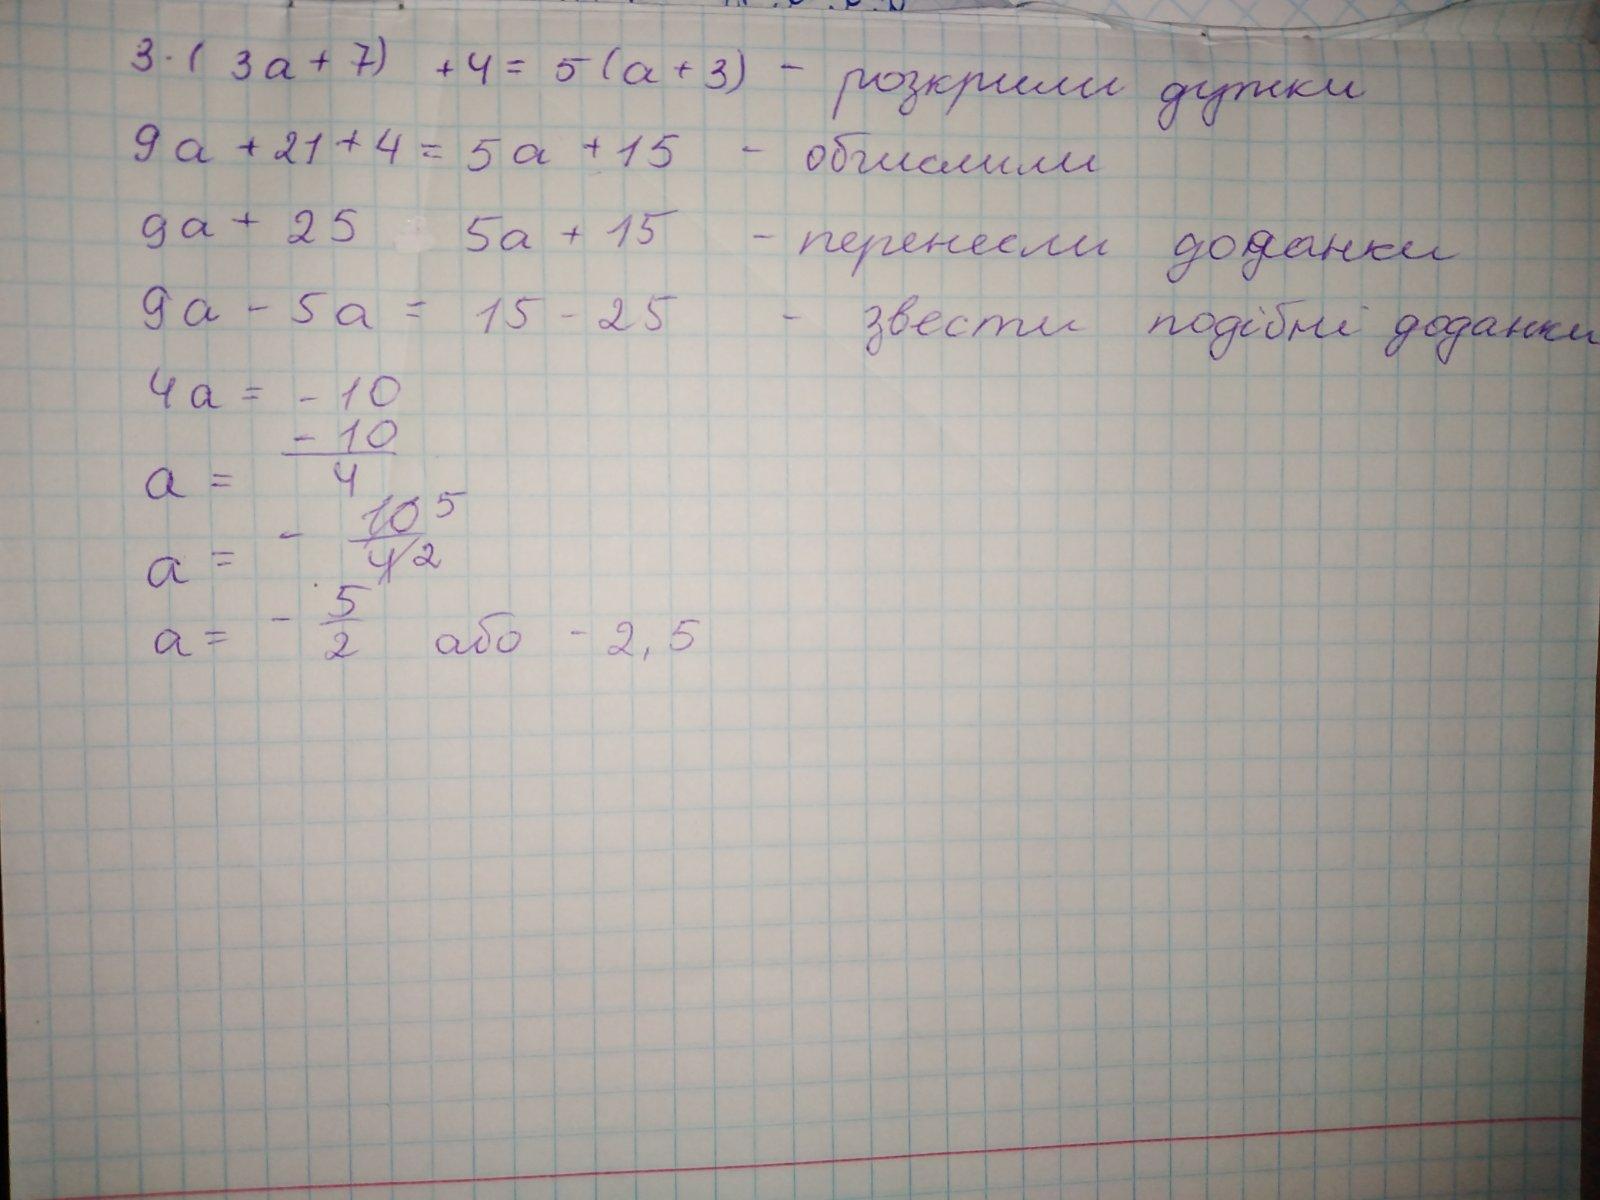 3·(3a+7) +4= 5(a+3) - розкрили дужки
9a +21+4= 5a +15 - обчислили
9a+ 25 5a + 15 - перенесли доданки
9a - 5a = 15 - 25 - звести подібні доданки
4a = -10
a = -10/4
a = - 10/4 5 2
a = - 5/2 або - 2,5